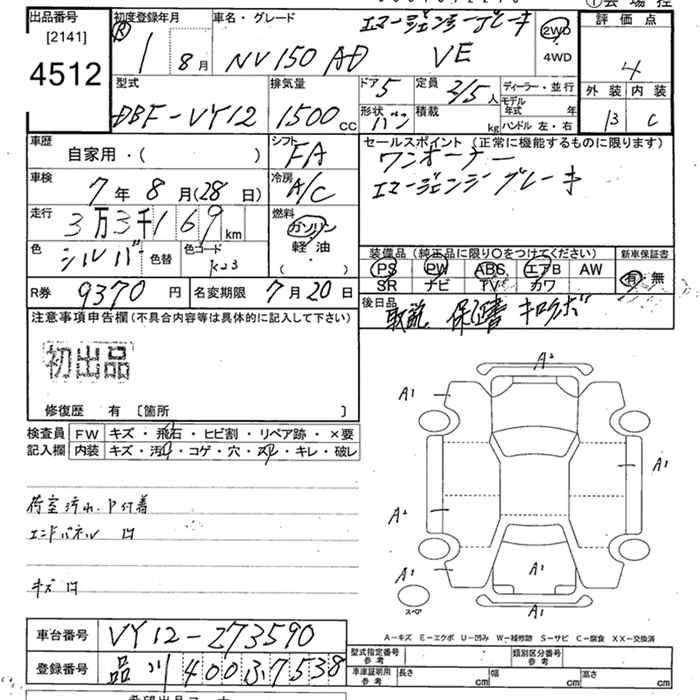 出品番号
[2141]
4512
初度登録年月
Ⓡ 1 8月
車名・グレード
エマージェンシーブレーキ
NV150 AD VE
2WD
4WD
評価点
4
外装 内装
B C
型式
DBF-VY12
排気量
1500cc
ドア 5
形状 バン
定員 2/5人
積載 kg
ディーラー・並行
モデル年式 年
ハンドル 左・右
車歴
自家用・( )
シフト
FA
セールスポイント (正常に機能するものに限ります)
ワンオーナー
エマージェンシーブレーキ
車検
7年8月(28日)
冷房
A/C
走行
3万3千169km
燃料
ガソリン
軽・油
( )
色
シルバー 色替
色コード
K23
装備品(純正品に限り○をつけてください)
PS PW ABS エアB AW
SR ナビ TV カワ
新車保証書
有・無
R券 9370円
名変期限 7月20日
後日品
取説 保証書 キロクボ
注意事項申告欄(不具合内容等は具体的に記入して下さい)
初出品
修復歴 有 [箇所 ]
検査員
記入欄
FW キズ・飛石・ヒビ割・リペア跡・×要
内装 キズ・汚れ・コゲ・穴・スレ・キレ・破レ
荷室汚れ、
エンドパネル
キズ
A2
A1
A1
A2
A1
A1
A1
A1
スペア
A-キズ E-エクボ U-凹み W-補修跡 S-サビ C-腐食 XX-交換済
車台番号 VY12-273590
登録番号 品川400す7538
型式指定番号
参考
類別区分番号
参考
車庫証明用
参考
長さ cm
幅 cm
高さ cm